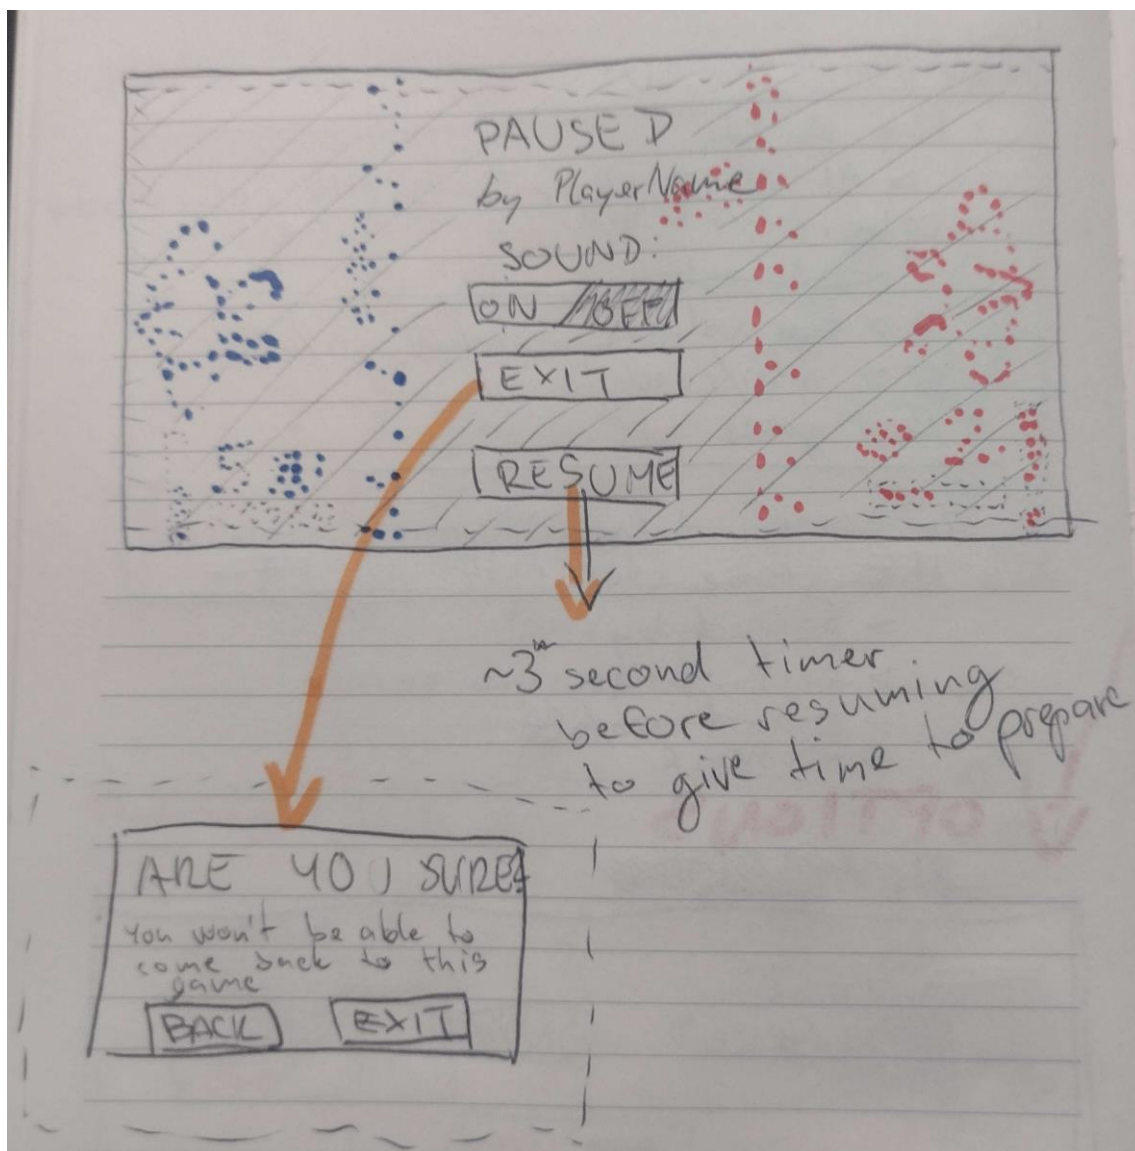 PAUSED
by PlayerName
SOUND:
ON OFF
EXIT
RESUME
~3 second timer
before resuming
to give time to prepare
OPTIONS
ARE YOU SURE?
You won't be able to
come back to this
game
BACK EXIT